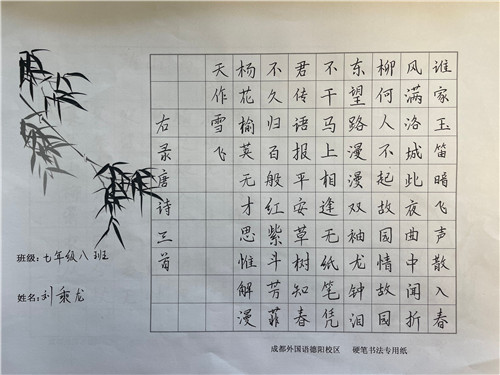 谁家玉笛暗飞声散入春
风满洛城此夜曲中闻折
柳何人不起故园情故园
东望路漫漫双袖龙钟泪
不干马上相逢无纸笔凭
君传语报平安草树知春
不久归百般红紫斗芳菲
杨花榆荚无才思惟解漫
天作雪飞
右录唐诗三首
班级:七年级八班
姓名:刘乘龙
成都外国语德阳校区 硬笔书法专用纸